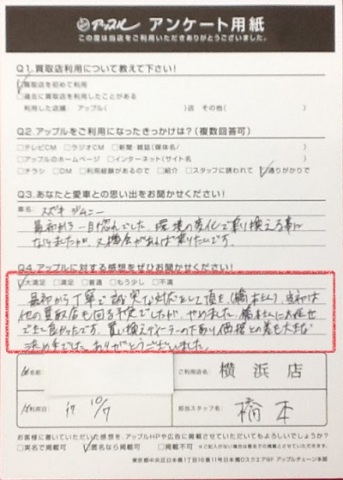 アップル アンケート用紙
この度は当店をご利用いただきありがとうございました。
Q1.買取店利用について教えて下さい!
買取店を初めて利用
過去に買取店を利用したことがある
利用した店舗 アップル( )店 その他( )
Q2.アップルをご利用になったきっかけは?(複数回答可)
テレビCM ラジオCM 新聞・雑誌(媒体名/ )
アップルのホームページ インターネット(サイト名 )
チラシ DM 利用経験があるので 紹介 スタッフに誘われて 通りがかりで
Q3.あなたと愛車との思い出をお聞かせください!
車名: スズキ ジムニー
環境の変化で乗り換える事に
なりましたが、又機会があれば乗りたいです。
Q4.アップルに対する感想をぜひお聞かせください!
大満足 満足 普通 もう少し 不満
最初から丁寧で誠実な対応をして頂き(橋本さん)、当初は
他の買取店も回る予定でしたが、やめました。橋本さんにお任せ
できて良かったです。買い換えディーラーの下取り価格との差も大きな
決め手でした。ありがとうございました。
お名前
ご利用店名 横浜店
ご利用日 17 10/7
担当スタッフ名 橋本
お客様に書いていただいた感想を、アップルHPや広告に掲載させていただいてもよろしいでしょうか?
実名で掲載可 匿名なら掲載可 掲載不可
東京都中央区日本橋1丁目16番11号日本橋Dスクエア9F アップルチェーン本部